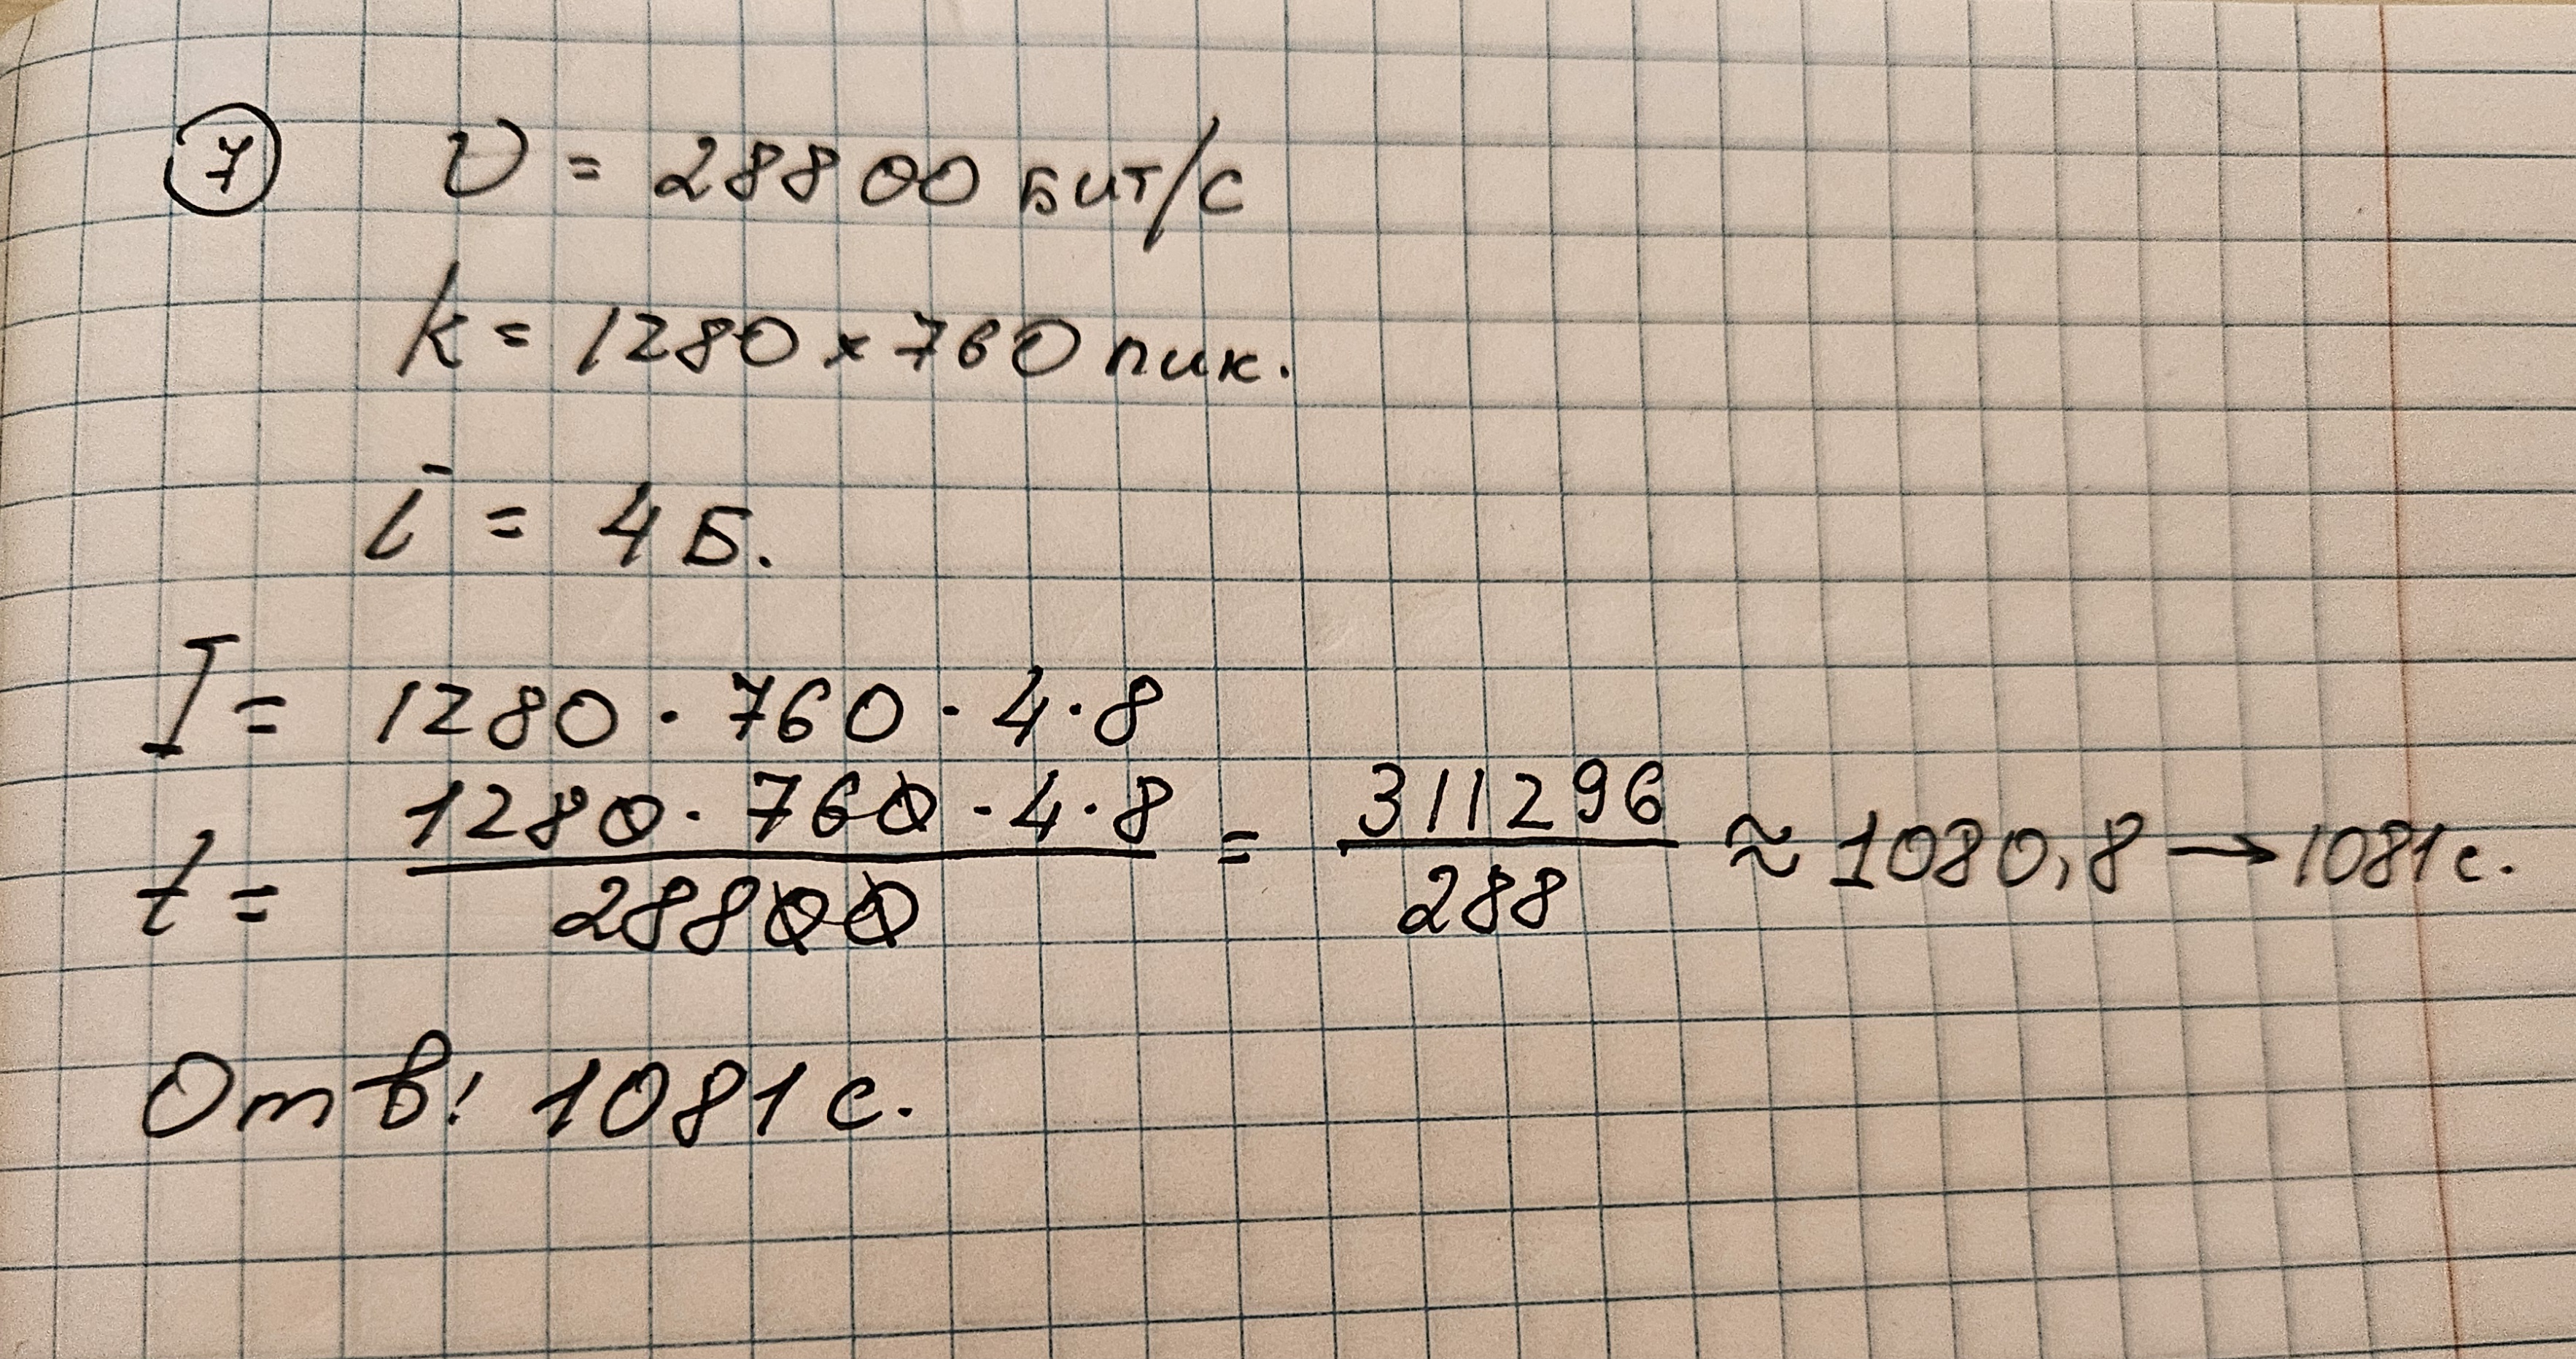 7 υ = 28800 бит/с
k = 1280 × 760 пик.
i = 4 Б.
I = 1280 · 760 · 4 · 8
t = 1280 · 760 · 4 · 8 / 28800 = 311296 / 288 ≈ 1080,8 → 1081 с.
Отв: 1081 с.